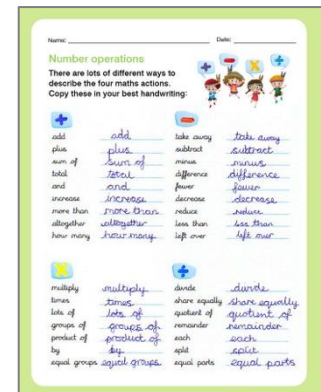 Name: Date:
Number operations
There are lots of different ways to
describe the four maths actions.
Copy these in your best handwriting:
+ - x ÷
+
add add
plus plus
sum of sum of
total total
and and
increase increase
more than more than
altogether altogether
how many how many
-
take away take away
subtract subtract
minus minus
difference difference
fewer fewer
decrease decrease
reduce reduce
less than less than
left over left over
x
multiply multiply
times times
lots of lots of
groups of groups of
product of product of
by by
equal groups equal groups
÷
divide divide
share equally share equally
quotient of quotient of
remainder remainder
each each
split split
equal parts equal parts